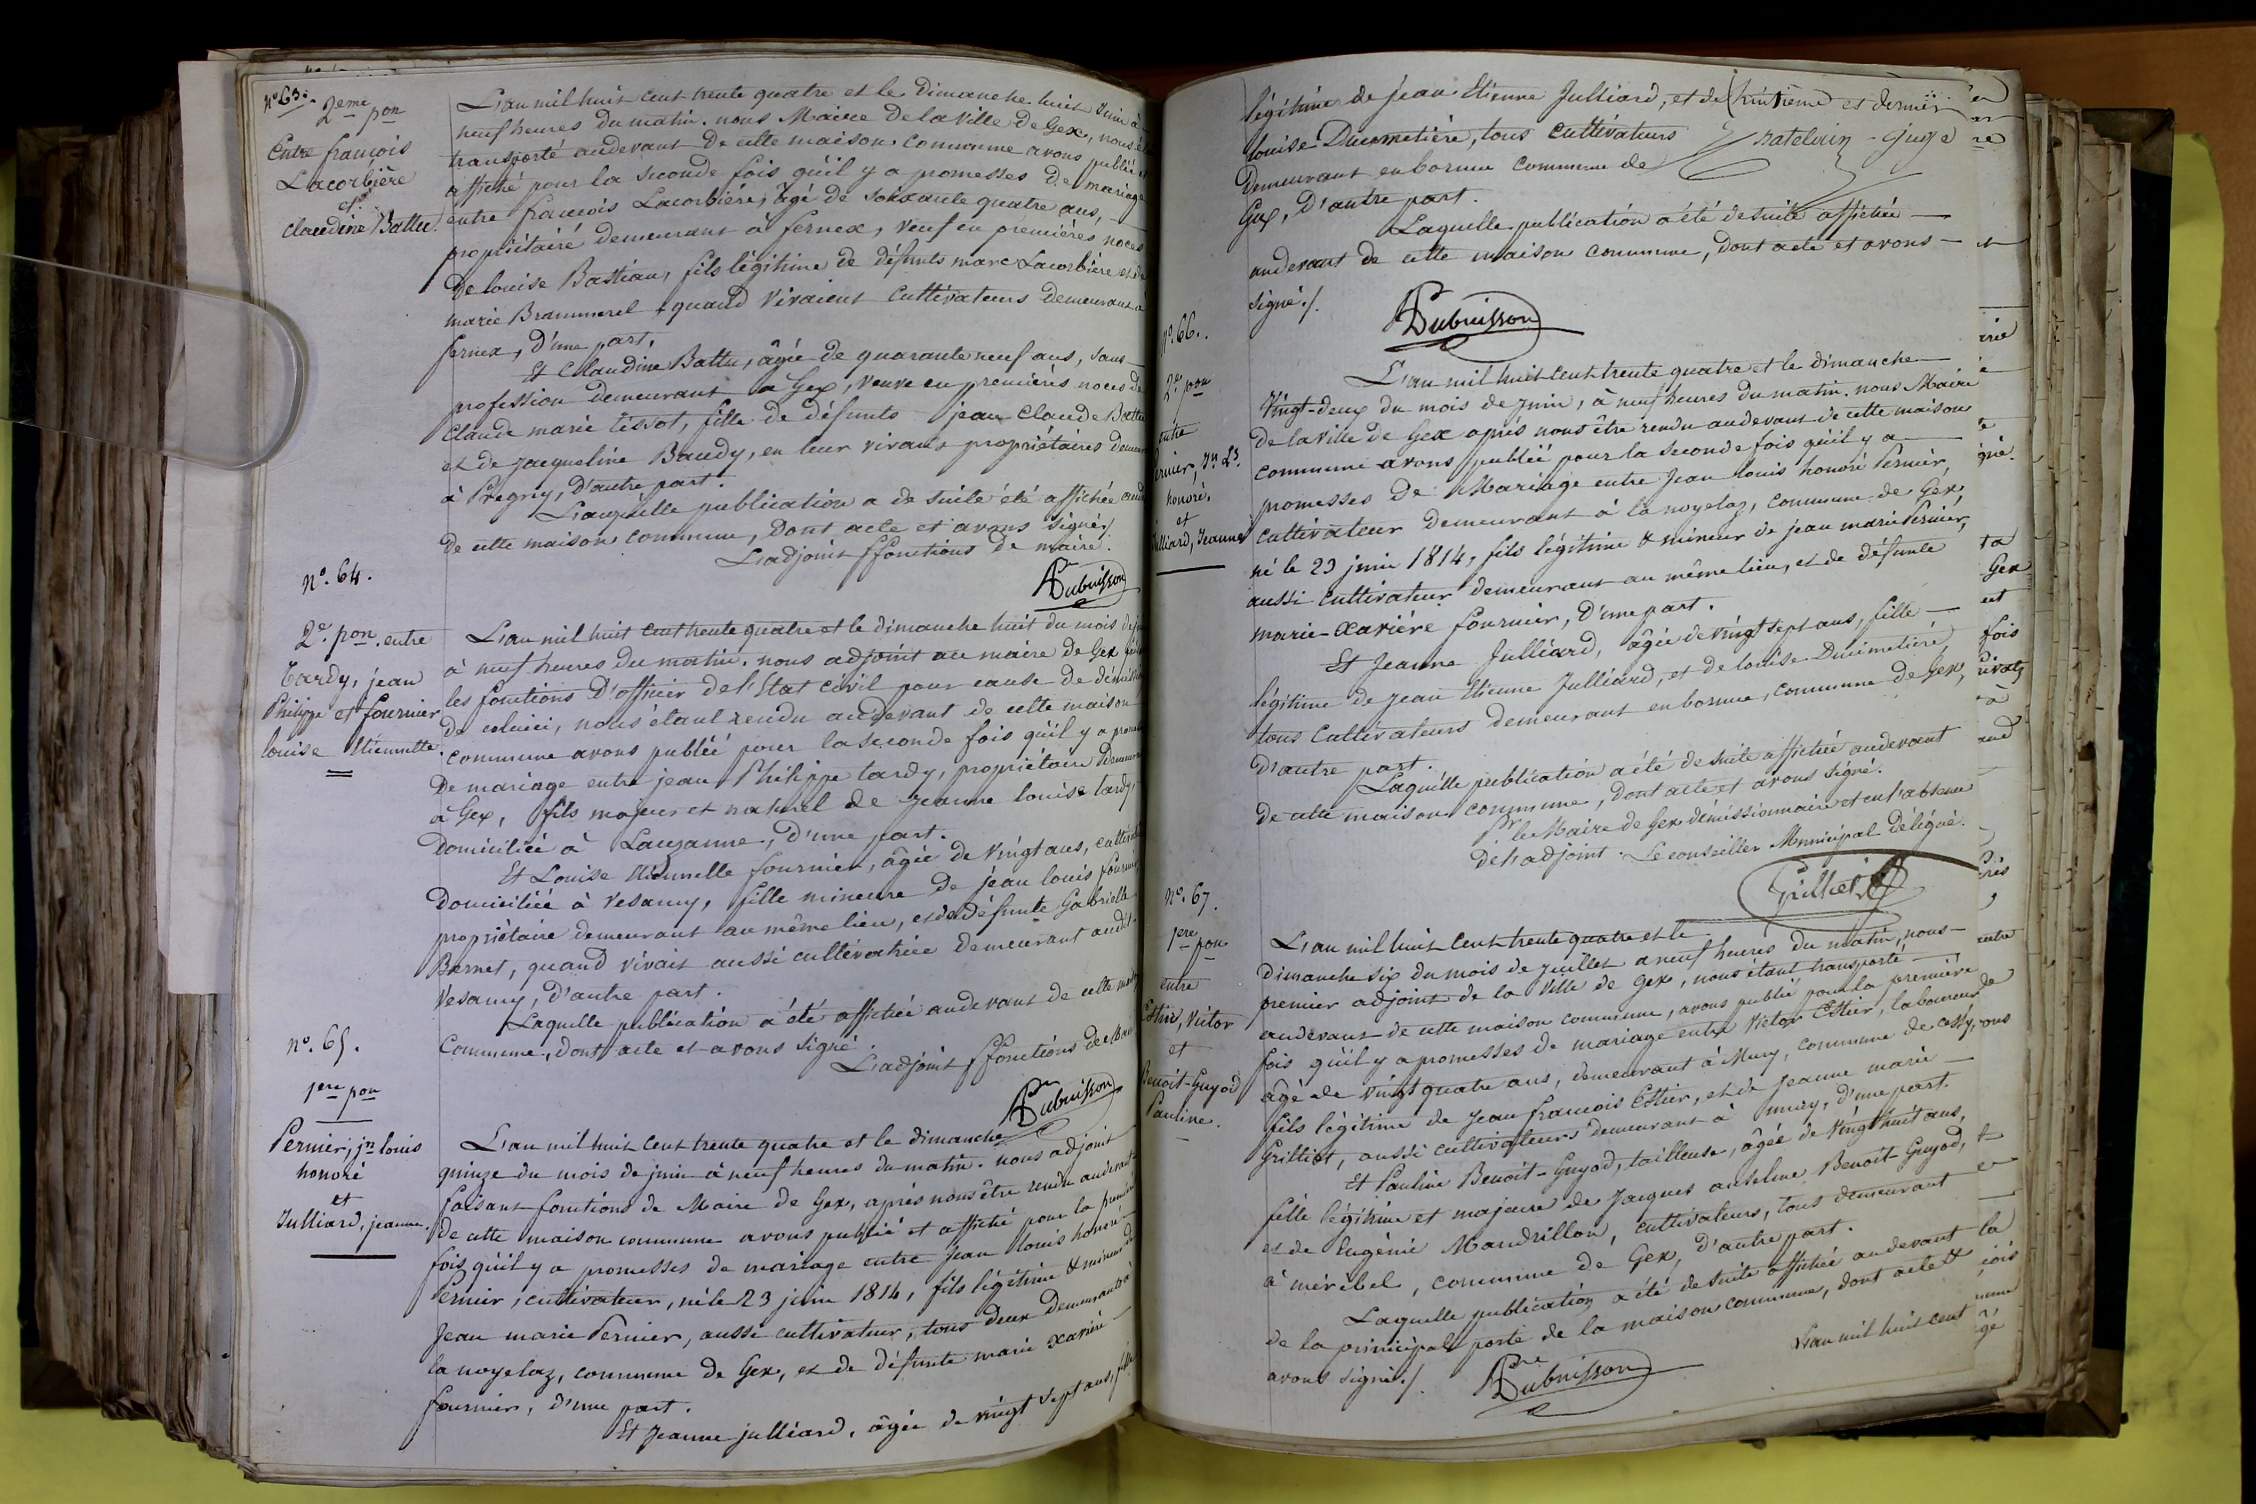 N° 63.
2eme pon
Entre françois
Lacorbière
et
Claudine Battu.
L'an mil huit cent trente quatre et le dimanche huit Juin à
neuf heures du matin. nous Maire de la ville de Gex, nous
transporté audevant de cette maison commune avons publié
affiché pour la seconde fois qu'il y a promesses de mariage
entre françois Lacorbière, âgé de soixante quatre ans,
propriétaire demeurant à fernex, veuf en premières noces
de louise Bastian, fils légitime de défunts marc Lacorbière et de
marie Brammerel quand vivaient cultivateurs demeurant à
fernex, d'une part,
Et Claudine Battu, âgée de quarante neuf ans, sans
profession demeurant à Gex, veuve en premières noces de
Claude marie tissot, fille de défunts jean Claude Battu
et de Jacqueline Baudy, en leur vivant propriétaires
à Prégny, d'autre part.
Laquelle publication a de suite été affichée
de cette maison commune, Dont acte et avons signé /
L'adjoint ff fonctions de maire.
Dubuisson
N°. 64.
2e. pon. entre
Tardy, jean
Philippe et fournier
louise Etiennette.
L'an mil huit cent trente quatre et le dimanche huit du mois de
à neuf heures du matin. nous adjoint au maire de Gex
les fonctions d'officier de l'Etat civil pour cause de
de celui ci, nous étant rendu audevant de cette maison
commune avons publié pour la seconde fois qu'il y a
de mariage entre jean Philippe tardy, propriétaire
à Gex, fils majeur et naturel de Jeanne louise tardy,
domiciliée à Lauzanne, d'une part.
Et Louise Etiennette fournier, âgée de vingt ans,
domiciliée à Vesancy, fille mineure de jean louis
propriétaire demeurant au même lieu, et de défunte Gabrielle
Barnet, quand vivait aussi cultivatrice demeurant
Vesancy, d'autre part.
Laquelle publication a été affichée audevant de cette
Commune, dont acte et avons signé.
L'adjoint ff fonctions de
Dubuisson
n°. 65.
1ere pon
Pernier, jn louis
honoré
et
Julliard, jeanne.
L'an mil huit cent trente quatre et le dimanche
quinze du mois de juin à neuf heures du matin. nous adjoint
faisant fonctions de Maire de Gex, après nous être rendu audevant
de cette maison commune avons publié et affiché pour la
fois qu'il y a promesses de mariage entre jean louis honoré
Pernier, cultivateur, né le 23 juin 1814, fils légitime & mineur
Jean marie Pernier, aussi cultivateur, tous deux demeurant à
la noyelaz, commune de Gex, et de défunte marie xavière
fournier, d'une part.
Et Jeanne julliard, âgée de vingt sept ans, fille
légitime de jean Etienne Julliard, et de
louise Ducimetière, tous cultivateurs
Demeurant en bornue commune de
Gex, d'autre part.
huitième et dernier
juge
Laquelle publication a été de suite affichée
audevant de cette maison commune, dont acte et avons
signé./.
Dubuisson
N°. 66.
2e. pon
entre
Pernier, Jn Ls.
honoré.
et
Julliard, Jeanne
L'an mil huit cent trente quatre et le dimanche
Vingt-deux du mois de Juin, à neuf heures du matin. nous Maire
de la ville de Gex après nous être rendu audevant de cette maison
commune avons publié pour la seconde fois qu'il y a
promesses de Mariage entre Jean louis honoré Pernier,
cultivateur demeurant à la noyelaz, commune de Gex,
né le 23 juin 1814, fils légitime & mineur de jean marie Pernier,
aussi cultivateur demeurant au même lieu, et de défunte
marie-xavière fournier, d'une part.
Et Jeanne Julliard, âgée de vingt sept ans, fille
légitime de jean Etienne Julliard, et de louise Ducimetière,
tous Cultivateurs demeurant en bornue, commune de Gex,
d'autre part.
Laquelle publication a été de suite affichée audevant
de cette maison commune, dont acte et avons signé.
Pr le Maire de Gex démissionnaire et en l'absence
de l'adjoint. Le conseiller Municipal Délégué.
N°. 67.
1ere pon
entre
Estier, Victor
et
Benoit-Guyod
Pauline.
L'an mil huit cent trente quatre et le
dimanche six du mois de juillet à neuf heures du matin, nous
premier adjoint de la Ville de Gex, nous étant transporté
audevant de cette maison commune, avons publié pour la première
fois qu'il y a promesses de mariage entre Victor Estier, laboureur
âgé de vingt quatre ans, demeurant à Mury, commune de cessy,
fils légitime de Jean françois Estier, et de Jeanne marie
Grilliet, aussi cultivateurs demeurant à mury, d'une part.
Et Pauline Benoit-Guyod, tailleuse, âgée de vingt huit ans,
fille légitime et majeure de Jacques anselme Benoit Guyod,
et de Eugénie Mandrillon, cultivateurs, tous demeurant
à méribel, commune de Gex, d'autre part.
Laquelle publication a été de suite affichée audevant
de la principale porte de la maison commune, dont acte &
avons signé./.
Dubuisson
L'an mil huit cent